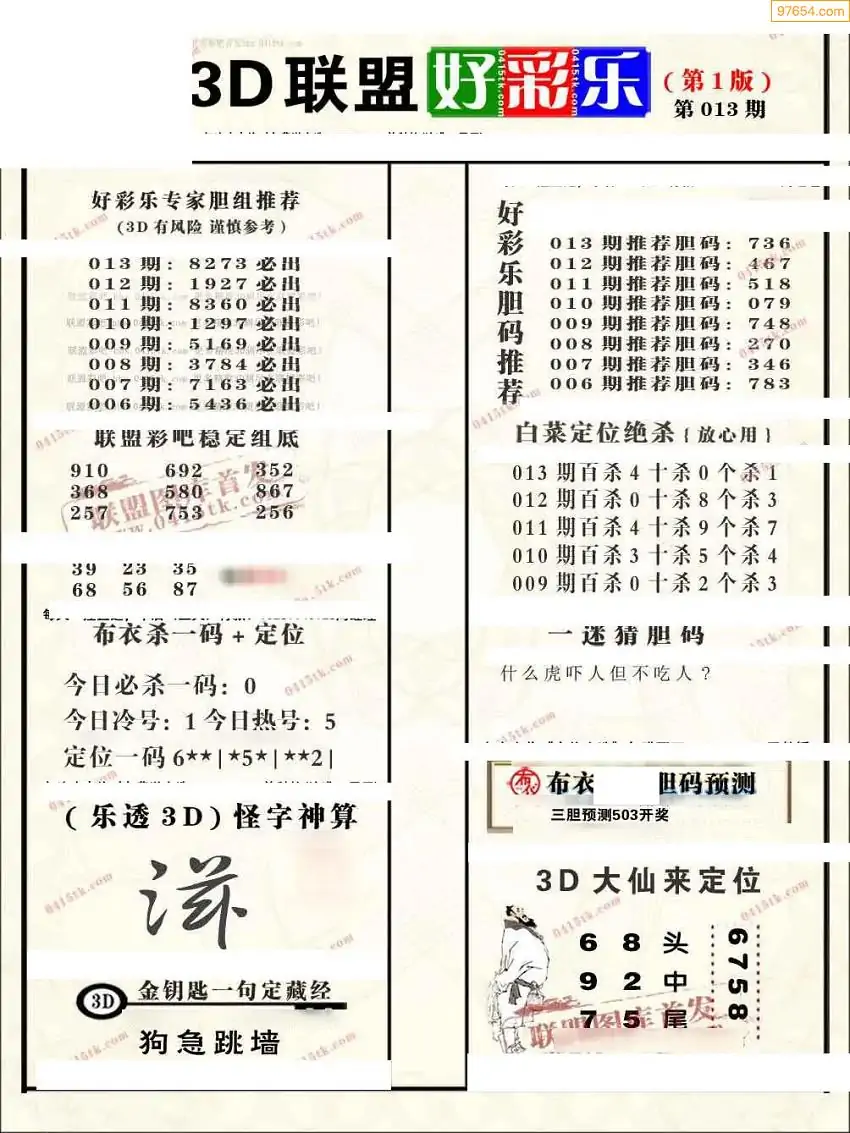 97654.com
3D联盟好彩乐(第1版)
第013期
好彩乐专家胆组推荐
(3D有风险 谨慎参考)
013期: 8273必出
012期: 1927必出
011期: 8360必出
010期: 1297必出
009期: 5169必出
008期: 3784必出
007期: 7163必出
006期: 5436必出
联盟彩吧稳定组底
910 692 352
368 580 867
257 753 256
39 23 35
68 56 87
布衣杀一码+定位
今日必杀一码: 0
今日冷号: 1 今日热号: 5
定位一码 6**|*5*|**2|
(乐透3D)怪字神算
滋
3D 金钥匙一句定藏经
狗急跳墙
好彩乐胆码推荐
013期推荐胆码: 736
012期推荐胆码: 467
011期推荐胆码: 518
010期推荐胆码: 079
009期推荐胆码: 748
008期推荐胆码: 270
007期推荐胆码: 346
006期推荐胆码: 783
白菜定位绝杀{放心用}
013期百杀4十杀0个杀1
012期百杀0十杀8个杀3
011期百杀4十杀9个杀7
010期百杀3十杀5个杀4
009期百杀0十杀2个杀3
一迷猜胆码
什么虎吓人但不吃人?
布衣 胆码预测
三胆预测503开奖
3D大仙来定位
6 8 头
9 2 中
7 5 尾
6758
联盟图库首发
www.0415tk.com
联盟图库首发
0415tk.com